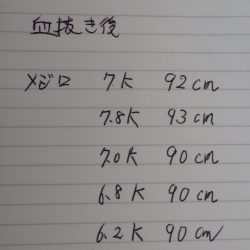 血抜き後
メジロ 7K 92cm
7.8K 93cm
7.0K 90cm
6.8K 90cm
6.2K 90cm